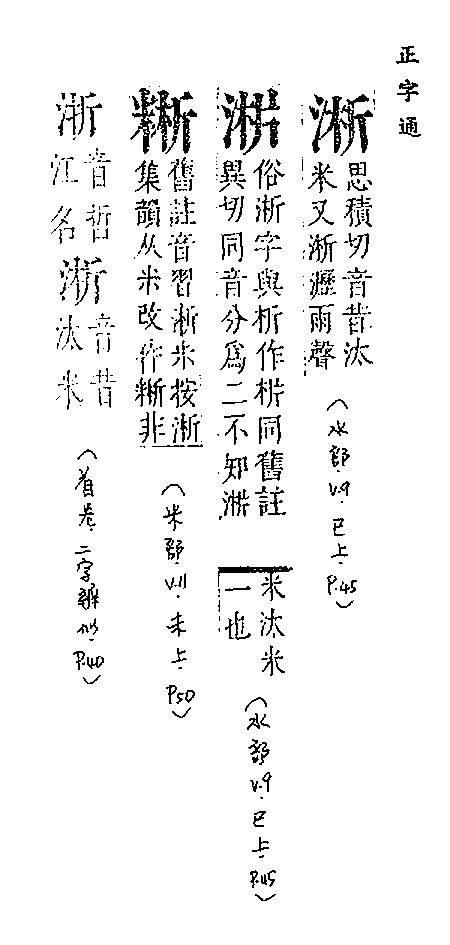 正字通
淅
思積切音昔汰
米又淅瀝雨聲
(水部.v.9.巳上.P.45)
俗淅字與析作㭊同舊註
異切同音分爲二不知
米汰米
一也
(水部.v.9.巳上.P.45)
舊註音習淅米按淅
集韻从米改作䊂非
(米部.v.11.未上.P.50)
浙
音哲
江名
淅
音昔
汰米
(首卷.二字辨似.P.40)